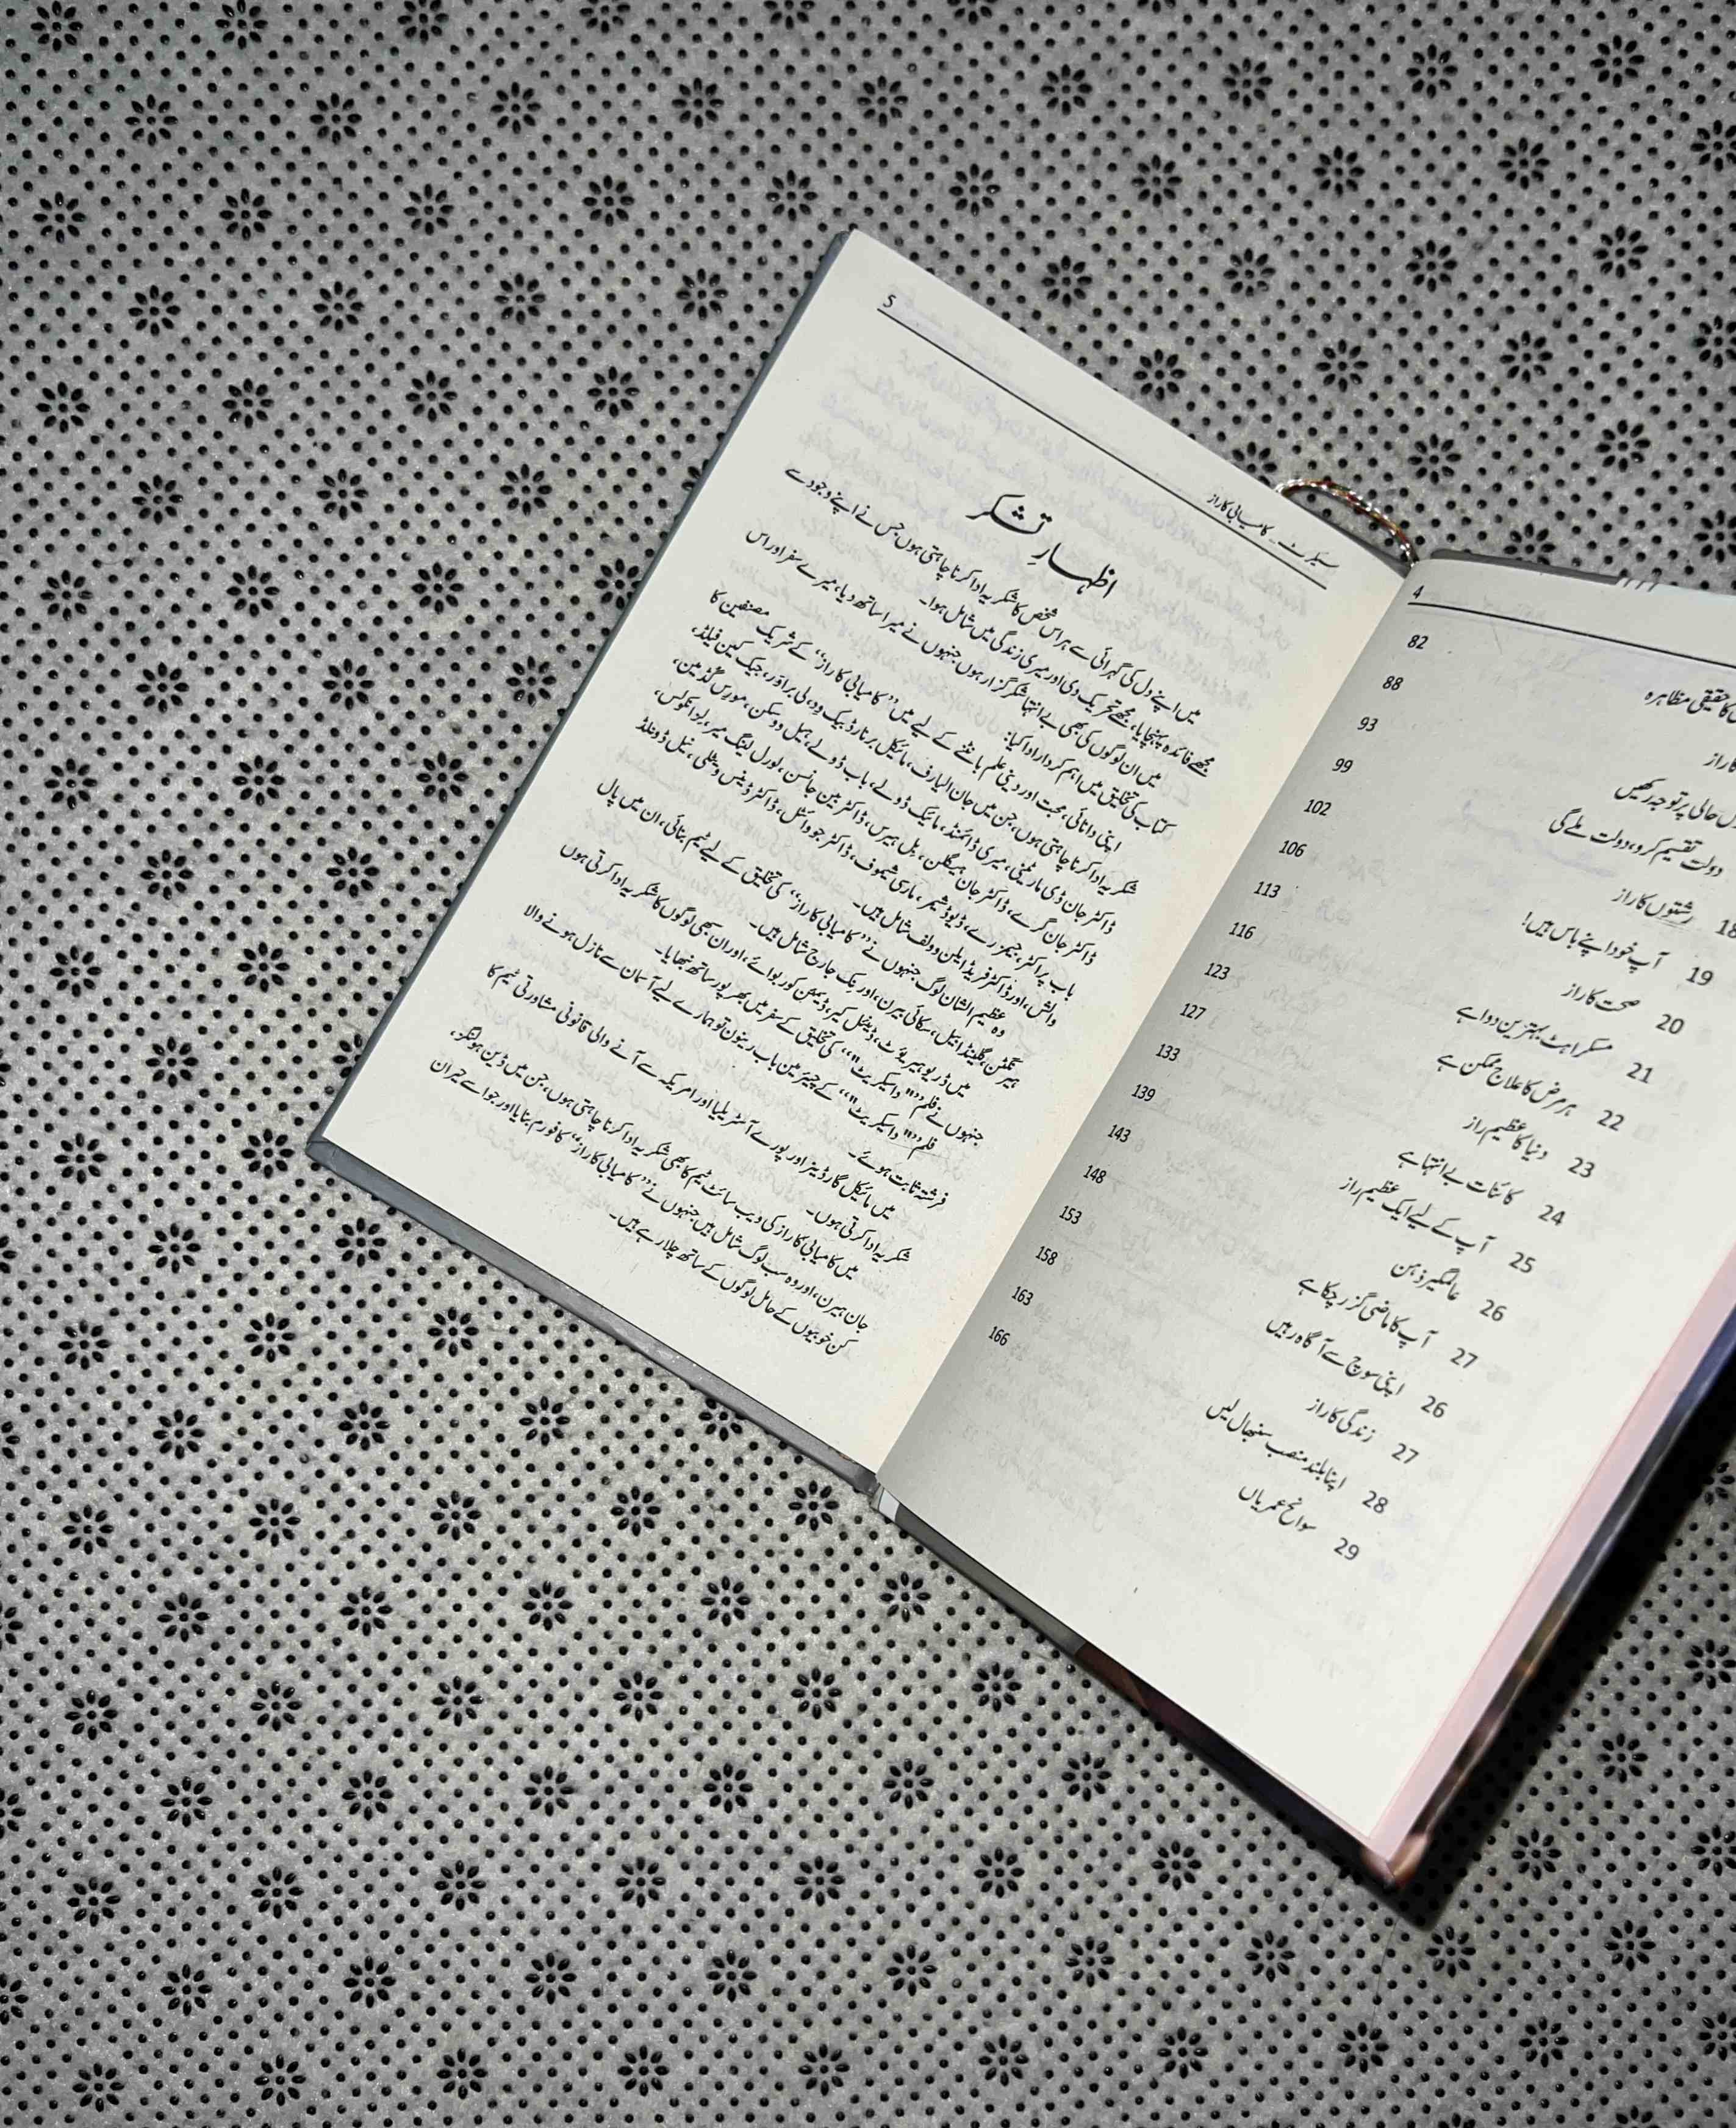 4
کا حقیقی مظاہرہ 82
کا راز 88
حالی پر توجہ رکھیں 93
دولت تقسیم کرو، دولت ملے گی 99
18 رشتوں کا راز 102
19 آپ خود اپنے باس ہیں! 106
20 صحت کا راز 113
21 مسکراہٹ بہترین دوا ہے 116
22 ہر مرض کا علاج ممکن ہے 123
23 دنیا کا عظیم راز 127
24 کائنات بے انتہا ہے 133
25 آپ کے لیے ایک عظیم راز 139
26 عالمگیر ذہن 143
27 آپ کا ماضی گزر چکا ہے 148
26 اپنی سوچ سے آگاہ رہیں 153
27 زندگی کا راز 158
28 اپنا بلند منصب سنبھال لیں 163
29 سوانح عمریاں 166
سیکرٹ۔ کامیابی کا راز 5
اظہارِ تشکر
میں اپنے دل کی گہرائی سے ہر اس شخص کا شکریہ ادا کرنا چاہتی ہوں جس نے اپنے وجود سے
مجھے فائدہ پہنچایا، مجھے تحریک دی اور میری زندگی میں شامل ہوا۔
میں ان لوگوں کی بھی بے انتہا شکر گزار ہوں جنہوں نے میرا ساتھ دیا، میرے سفر اور اس
کتاب کی تخلیق میں اہم کردار ادا کیا:
اپنی دانائی، محبت اور دینی علم بانٹنے کے لیے میں ”کامیابی کا راز“ کے شریک مصنفین کا
شکریہ ادا کرنا چاہتی ہوں، جن میں جان الیارف، مائیکل برنارڈ بیک وِد، لی براؤر، جیک کین فیلڈ،
ڈاکٹر جان ڈی مارٹینی، میری ڈائمنڈ، مائیک ڈولے، باب ڈولے، ہیل دوسکن، مورِس گڈمین،
ڈاکٹر جان گرے، ڈاکٹر جان ہیگلن، بل ہیرس، ڈاکٹر بین جانسن، لورل لینگ میر،
باب پراکٹر، جیمز رے، ڈیوڈ شیمر، مارسی شیموف، ڈاکٹر جو وائٹل، ڈاکٹر ڈینس ویٹلی، نیل ڈونلڈ
والش، اور ڈاکٹر فریڈ ایلن وولف شامل ہیں۔
وہ عظیم الشان لوگ جنہوں نے ”کامیابی کا راز“ کی تخلیق کے لیے ٹیم بنائی، ان میں پال
ہیرنگٹن، گلینڈا بیل، سکائی بیرن، اور نِک جارج شامل ہیں۔
میں ڈریو ہیریوٹ، ڈینیل کیر، ڈیمین کوربوائے، اور ان سبھی لوگوں کا شکریہ ادا کرتی ہوں
جنہوں نے فلم ”"دا سیکریٹ"“ کی تخلیق کے سفر میں بھرپور ساتھ نبھایا۔
فلم ”"دا سیکریٹ"“ کے چیئرمین باب رینون تو ہمارے لیے آسمان سے نازل ہونے والا
فرشتہ ثابت ہوئے۔
میں مائیکل گارڈینر اور پورے آسٹریلیا اور امریکہ سے آنے والی قانونی مشاورتی ٹیم کا
شکریہ ادا کرتی ہوں۔
میں کامیابی کا راز کی ویب سائٹ ٹیم کا بھی شکریہ ادا کرنا چاہتی ہوں، جن میں ڈین ہولنگز،
جان ہیرن، اور وہ سب لوگ شامل ہیں جنہوں نے ”کامیابی کا راز“ کا فورم بنایا اور جو اسے حیران
کن خوبیوں کے حامل لوگوں کے ساتھ چلا رہے ہیں۔